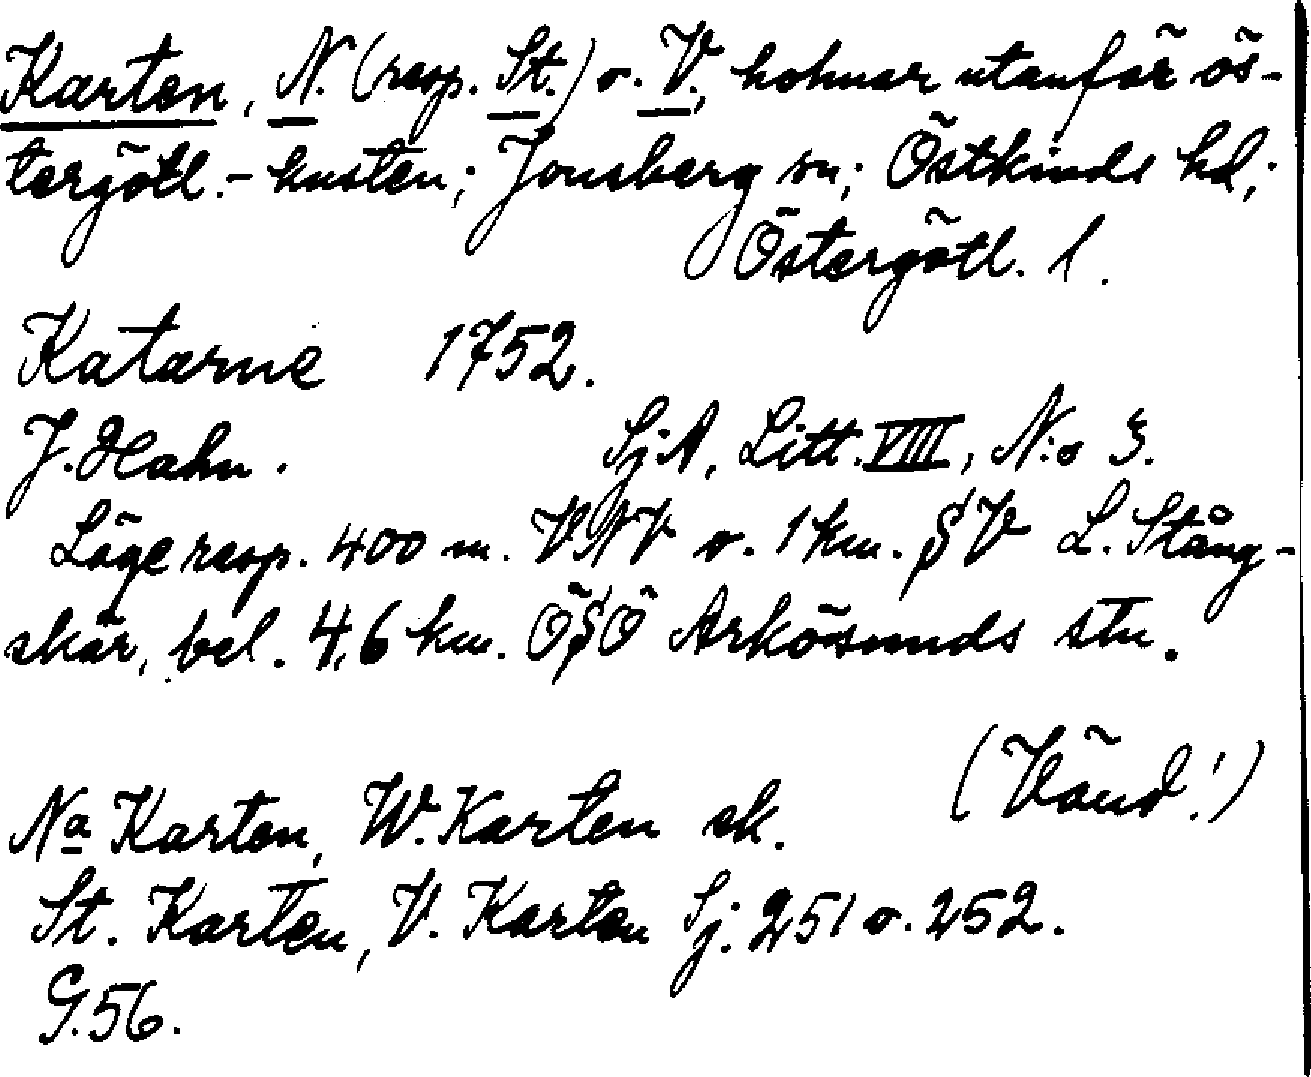 Karten, N. (resp. St.) o. V., holmar utanför ös-
tergötl.-kusten; Jonsberg sn; Östkinds hd;
Östergötl. l.
Katarne 1752.
J. Hahn. SjA, Litt. VIII, N:o 3.
Läge resp. 400 m. VNV o. 1 km. SV L. Stång-
skär, bel. 4,6 km. ÖSÖ Arkösunds stn.
(Vänd!)
Na Karten, W. Karten sk.
St. Karten, V. Karten Sj. 251 o. 252.
G. 56.